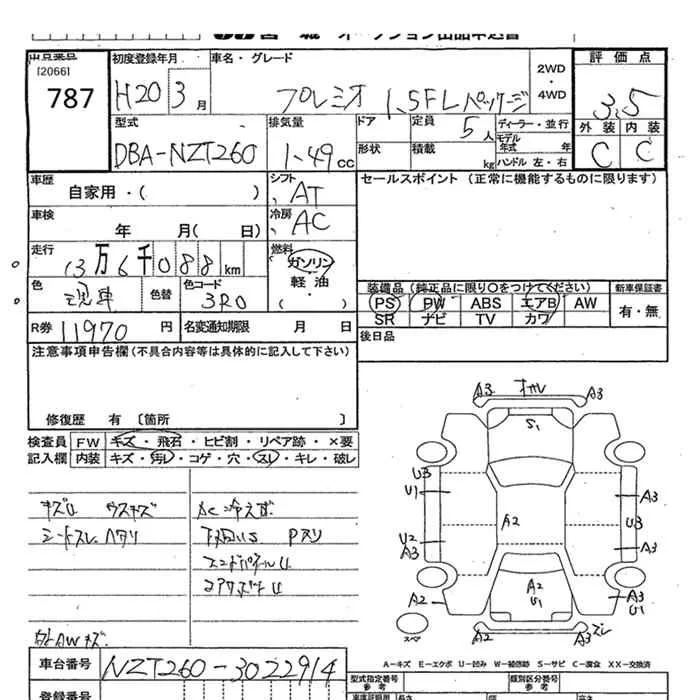 出品番号 初度登録年月 車名・グレード 2WD・4WD 評価点
[2066]
787 H20 3月 プレミオ 1.5FLパッケージ 3.5
型式 排気量 ドア 定員 5人 ディーラー・並行 外装 内装
DBA-NZT260 1.49cc 形状 積載 kg モデル年式 年 ハンドル 左・右 C C
車歴 自家用・( ) シフト AT セールスポイント (正常に機能するものに限ります)
車検 年 月( 日) 冷房 AC
走行 13万6千088km 燃料 ガソリン
軽油
( )
色 色替 色コード 3R0 装備品(純正品に限り○をつけてください) 新車保証書
PS PW ABS エアB AW 有・無
SR ナビ TV カワ
R券 11970円 名変通知期限 月 日 後日品
注意事項申告欄(不具合内容等は具体的に記入して下さい)
修復歴 有 〔箇所 〕
検査員 FW キズ・飛石・ヒビ割・リペア跡・×要
記入欄 内装 キズ・汚レ・コゲ・穴・スレ・キレ・破レ
キズU ウスキズ AC冷えず
シートスレ ヘタリ 下回りS Pスリ
エンドパネルU
コアサポートU
AWキズ
A3 A3
S1
U3
U1 A3
A2 U3
U2
A3 A3
A2
U1
A2 A3
U1
スペ A2 A3 ズレ
A-キズ E-エクボ U-凹み W-補修跡 S-サビ C-腐食 XX-交換済
車台番号 NZT260-3022914
型式指定番号 参考 類別区分番号 参考
登録番号 長さ 幅 高さ